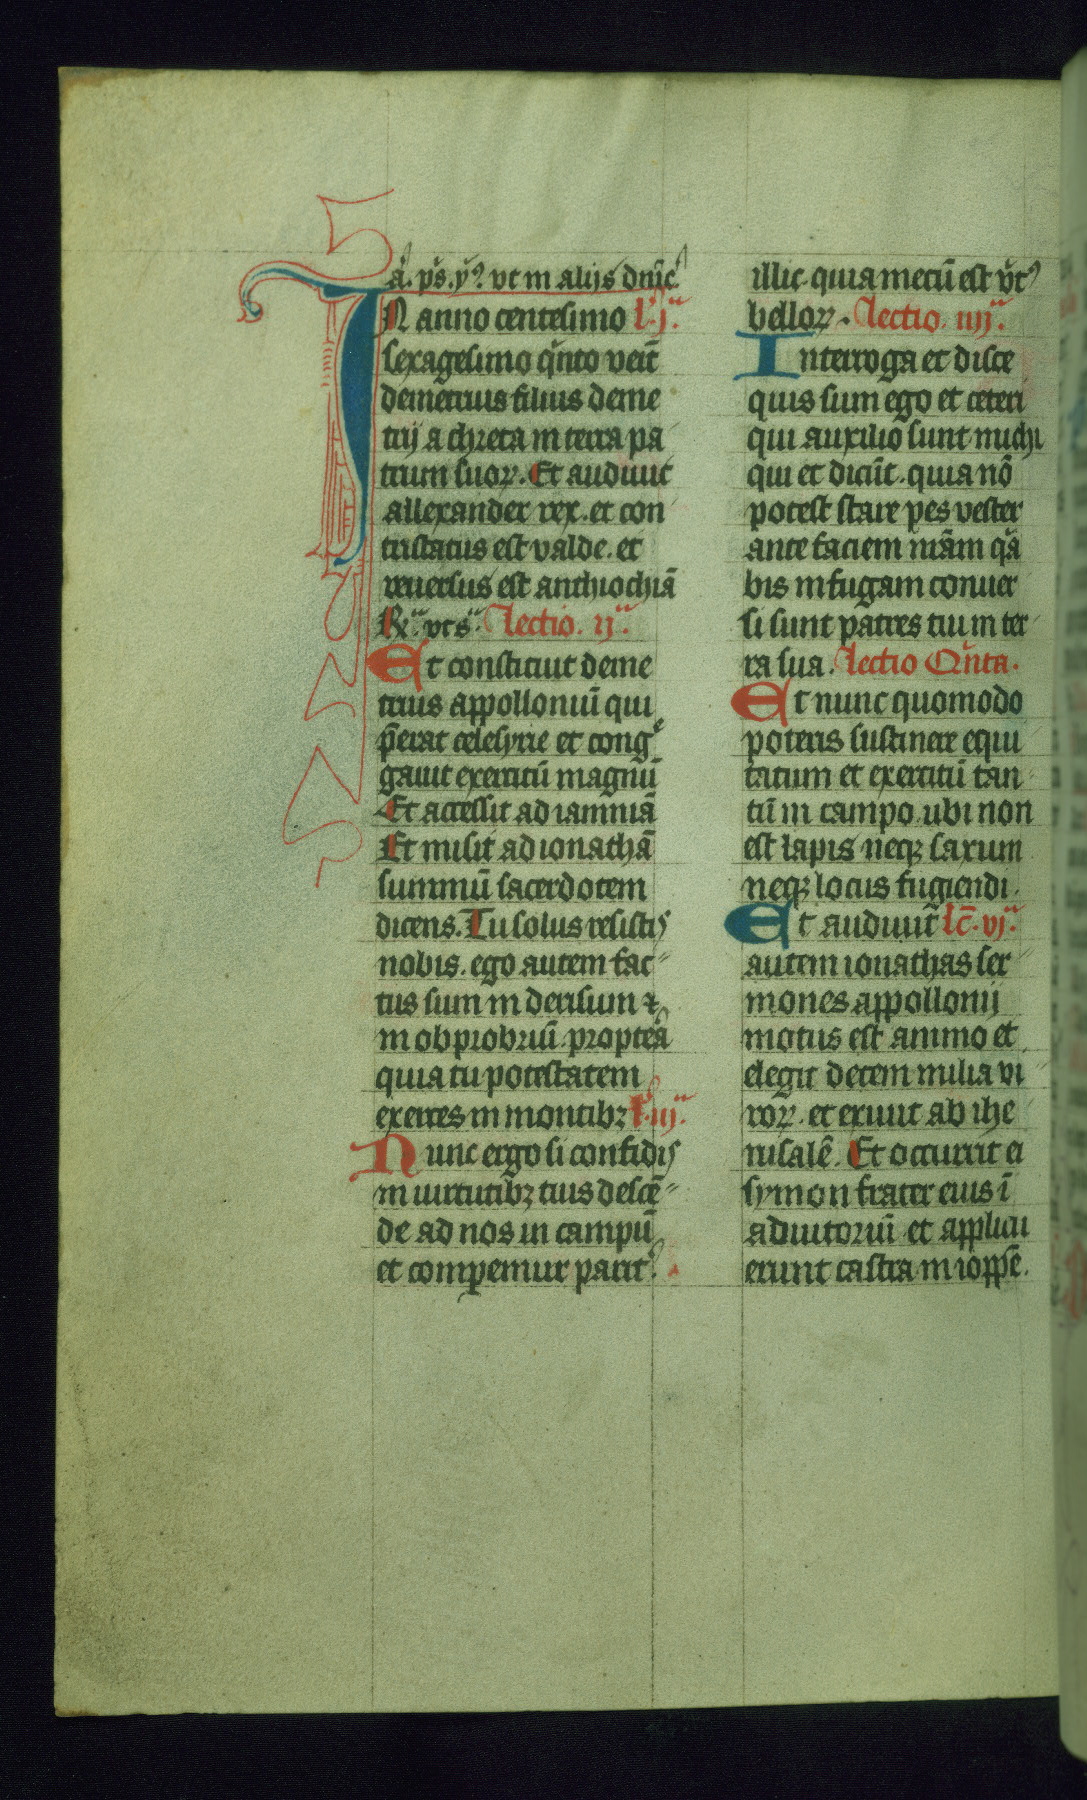 a͛. ps͛. v͛. vt in alijs dn̄ic͛.
IN anno centesimo l͛. jᵃ.
sexagesimo qͥnto venit
demetrius filius deme
trij a chreta in terra pa
trum suoꝝ. Et audiuit
allexander rex. et con
tristatus est valde. et
reuersus est anthiochiā
Rxᵃ. vt sᵃ. Lectio. ijᵃ.
Et constituit deme
trius appolloniū qui
p̄erat celesyrie et congͤ
gauit exercitū magnū
Et accessit ad iamniā
Et misit ad ionathā
summū sacerdotem
dicens. Tu solus resistis
nobis. ego autem fac
tus sum in derisum ⁊
in obprobriū. proptea͛
quia tu potestatem
exerces in montibꝫ l͛. iijᵃ.
Nunc ergo si confidis
in uirtutibꝫ tuis descē
de ad nos in campū
et compemur parit͛.
illic. quia mecū est v̓t͛
belloꝝ. Lectio. iiijᵃ.
Interroga et disce
quis sum ego et ceteri
qui auxilio sunt michi
qui et dicūt. quia nō
potest stare pes vester
ante faciem nr̄am qͣa
bis in fugam conuer
si sunt patres tui in ter
ra sua. Lectio Qͥnta.
Et nunc quomodo
poteris sustinere equi
tatum et exercitū tan
tū in campo. ubi non
est lapis neqꝫ saxum
neqꝫ locus fugiendi.
Et audiuit lc̄. vjᵃ.
autem ionathas ser
mones appollonij
motus est animo et
elegit decem milia vi
roꝝ. et exiuit ab ihe
rusalē. Et occurrit ei
symon frater eius ī
adiutoriū et applicu
erunt castra in ioppē.